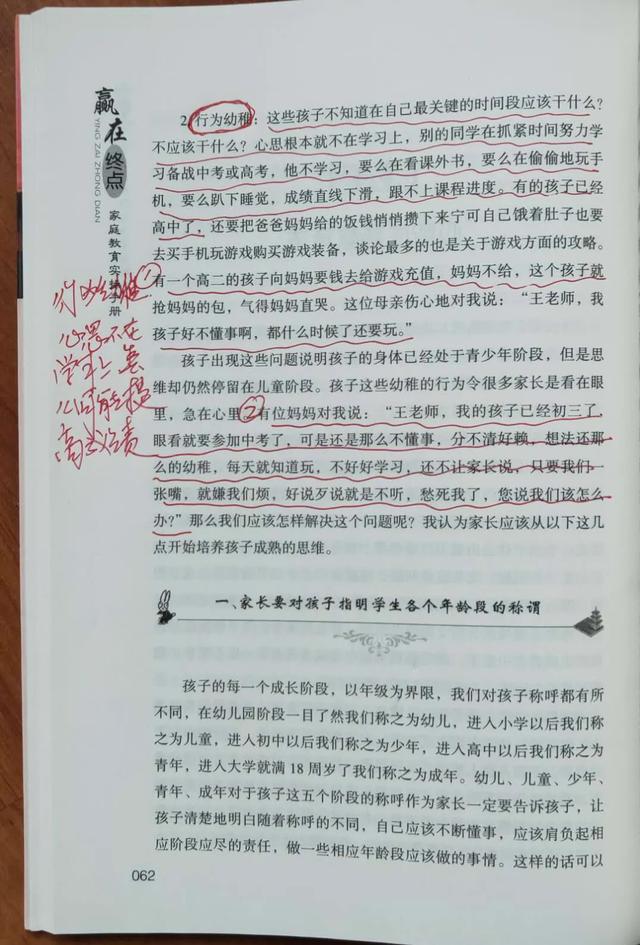 赢在终点
YING ZAI ZHONG DIAN
家庭教育实操手册
2.行为幼稚：这些孩子不知道在自己最关键的时间段应该干什么？
不应该干什么？心思根本就不在学习上，别的同学在抓紧时间努力学
习备战中考或高考，他不学习，要么在看课外书，要么在偷偷地玩手
机，要么趴下睡觉，成绩直线下滑，跟不上课程进度。有的孩子已经
高中了，还要把爸爸妈妈给的饭钱悄悄攒下来宁可自己饿着肚子也要
去买手机玩游戏购买游戏装备，谈论最多的也是关于游戏方面的攻略。
①
有一个高二的孩子向妈妈要钱去给游戏充值，妈妈不给，这个孩子就
抢妈妈的包，气得妈妈直哭。这位母亲伤心地对我说：“王老师，我
孩子好不懂事啊，都什么时候了还要玩。”
孩子出现这些问题说明孩子的身体已经处于青少年阶段，但是思
维却仍然停留在儿童阶段。孩子这些幼稚的行为令很多家长是看在眼
里，急在心里②有位妈妈对我说：“王老师，我的孩子已经初三了，
眼看就要参加中考了，可是还是那么不懂事，分不清好赖，想法还那
么的幼稚，每天就知道玩，不好好学习，还不让家长说，只要我们一
张嘴，就嫌我们烦，好说歹说就是不听，愁死我了，您说我们该怎么
办？”那么我们应该怎样解决这个问题呢？我认为家长应该从以下这几
点开始培养孩子成熟的思维。
行为幼稚
心思不在
学习上
一、家长要对孩子指明学生各个年龄段的称谓
孩子的每一个成长阶段，以年级为界限，我们对孩子称呼都有所
不同，在幼儿园阶段一目了然我们称之为幼儿，进入小学以后我们称
之为儿童，进入初中以后我们称之为少年，进入高中以后我们称之为
青年，进入大学就满 18 周岁了我们称之为成年。幼儿、儿童、少年、
青年、成年对于孩子这五个阶段的称呼作为家长一定要告诉孩子，让
孩子清楚地明白随着称呼的不同，自己应该不断懂事，应该肩负起相
应阶段应尽的责任，做一些相应年龄段应该做的事情。这样的话可以
062